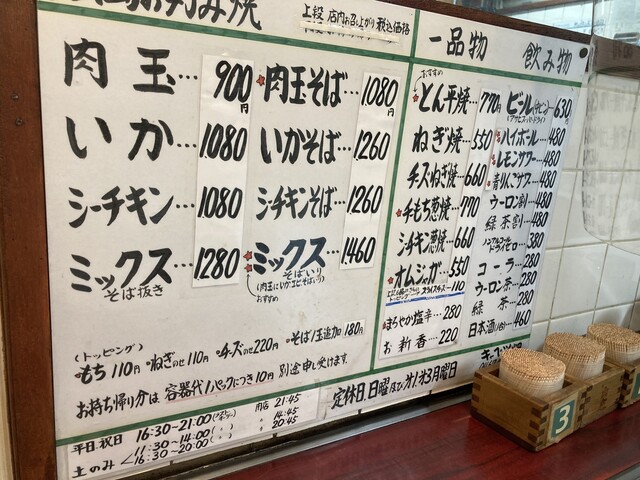 お好み焼
上段 店内お召し上がり税込価格
肉玉…900円
いか…1.080
シーチキン…1.080
ミックス…1280
そば抜き
肉玉そば…1.080円
いかそば…1.260
シチキンそば…1.260
ミックス…1.460
そばいり
(肉玉にいかエビそばいり)
おすすめ
(トッピング)
もち110円 ねぎのせ110円 チーズのせ220円 そば1玉追加180円
お持ち帰り分は容器代1パックにつき10円別途申し受けます
平日.祝日 16:30-21:00 閉店 21:45
土のみ 11:30~14:00 14:45
16:30~20:00 20:45
定休日.日曜及び、第1.第3月曜日
一品物
おすすめ
とん平焼…770円
ねぎ焼…550
チーズねぎ焼…660
チもち葱焼…770
シチキン葱焼…660
オムジャガ…550
まろやか塩辛…280
お新香…220
飲み物
ビール(中ビン)…630円
(アサヒスーパードライ)
ハイボール…480
レモンサワー…480
青りんごサワー…480
ウーロン割…480
緑茶割…480
ノンアルコールビール
ドライゼロ…380
コーラ…280
ウーロン茶…280
緑茶…280
日本酒(1合)…460
3